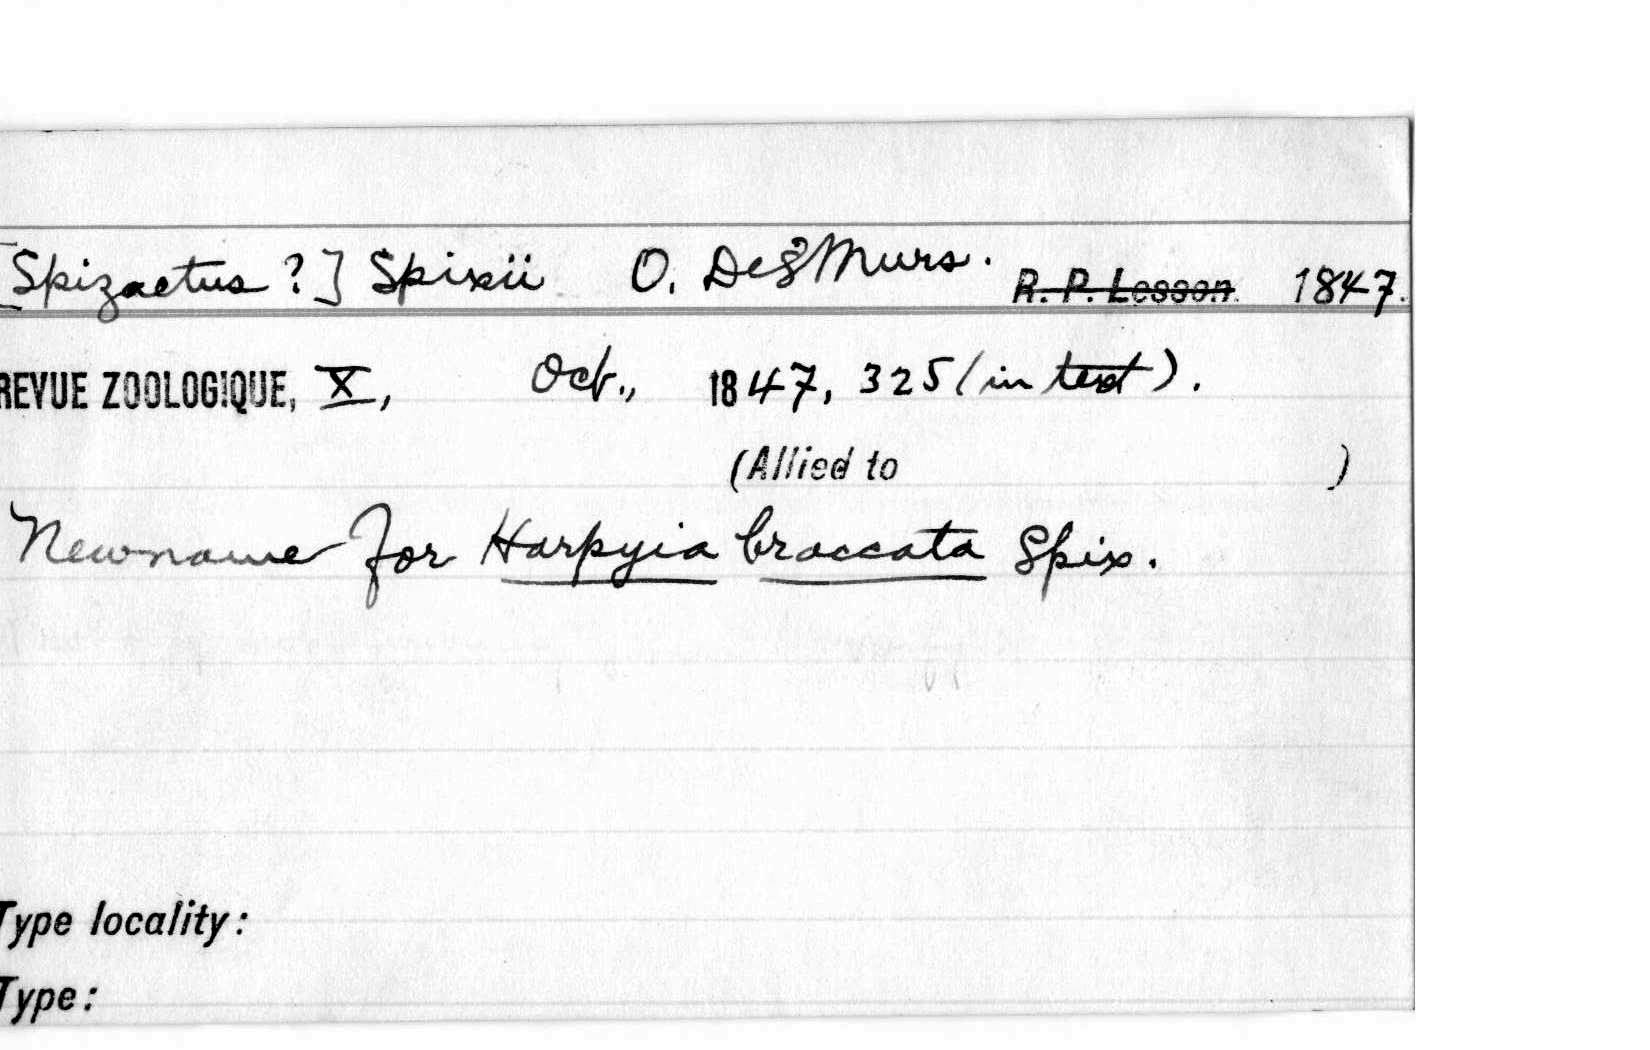 [Spizaetus ?] Spixii O. Des Murs. R. P. Lesson. 1847.
REVUE ZOOLOGIQUE, X, Oct., 1847, 325 (in text).
(Allied to )
New name for Harpyia braccata Spix.
Type locality:
Type: